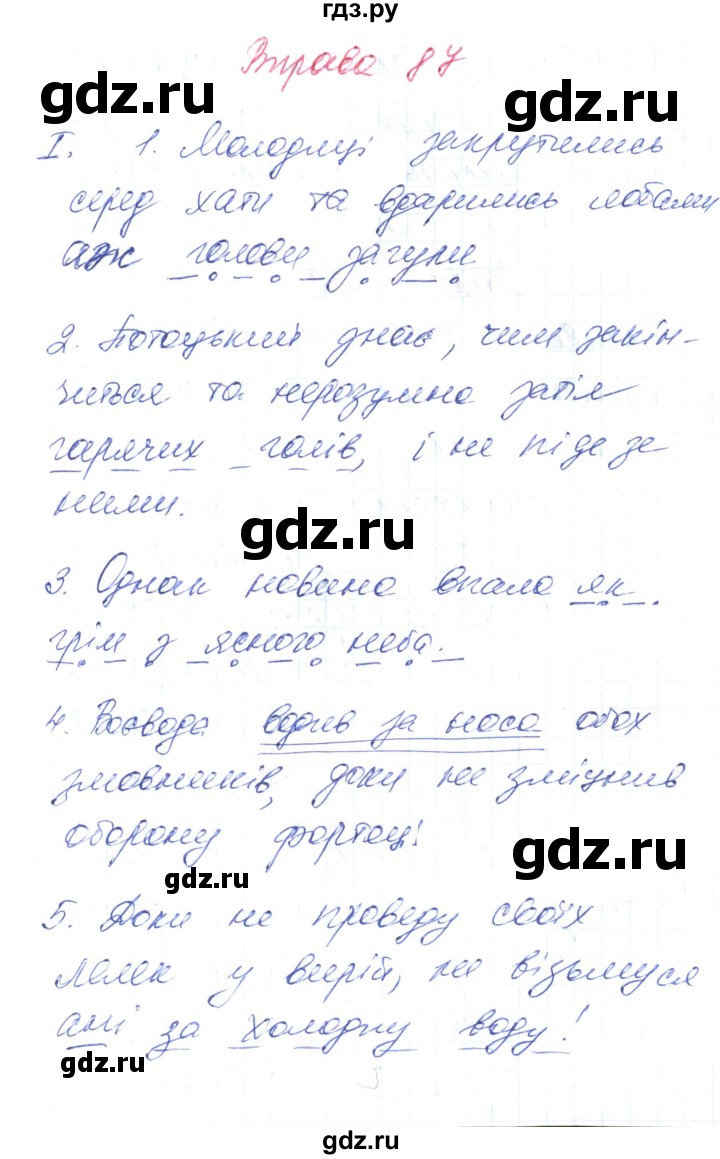 гдз.ру
Вправа 87
gdz.ru gdz.ru
I. 1. Молодиці закрутились
серед хати та вдарились лобами
аж голови загули
gdz.ru
2. Потоцький знає, чим закін-
читься та нерозумна затія
гарячих голів, і не піде за
ними.
gdz.ru
3. Однак новина впала як
грім з ясного неба.
4. Воєвода водив за носа обох
змовників, доки не зміцнив
оборону фортеці.
gdz.ru gdz.ru
5. Доки не проведу своїх
лелек у вирій, не візьмуся
ані за холодну воду!
gdz.ru gdz.ru
gdz.ru